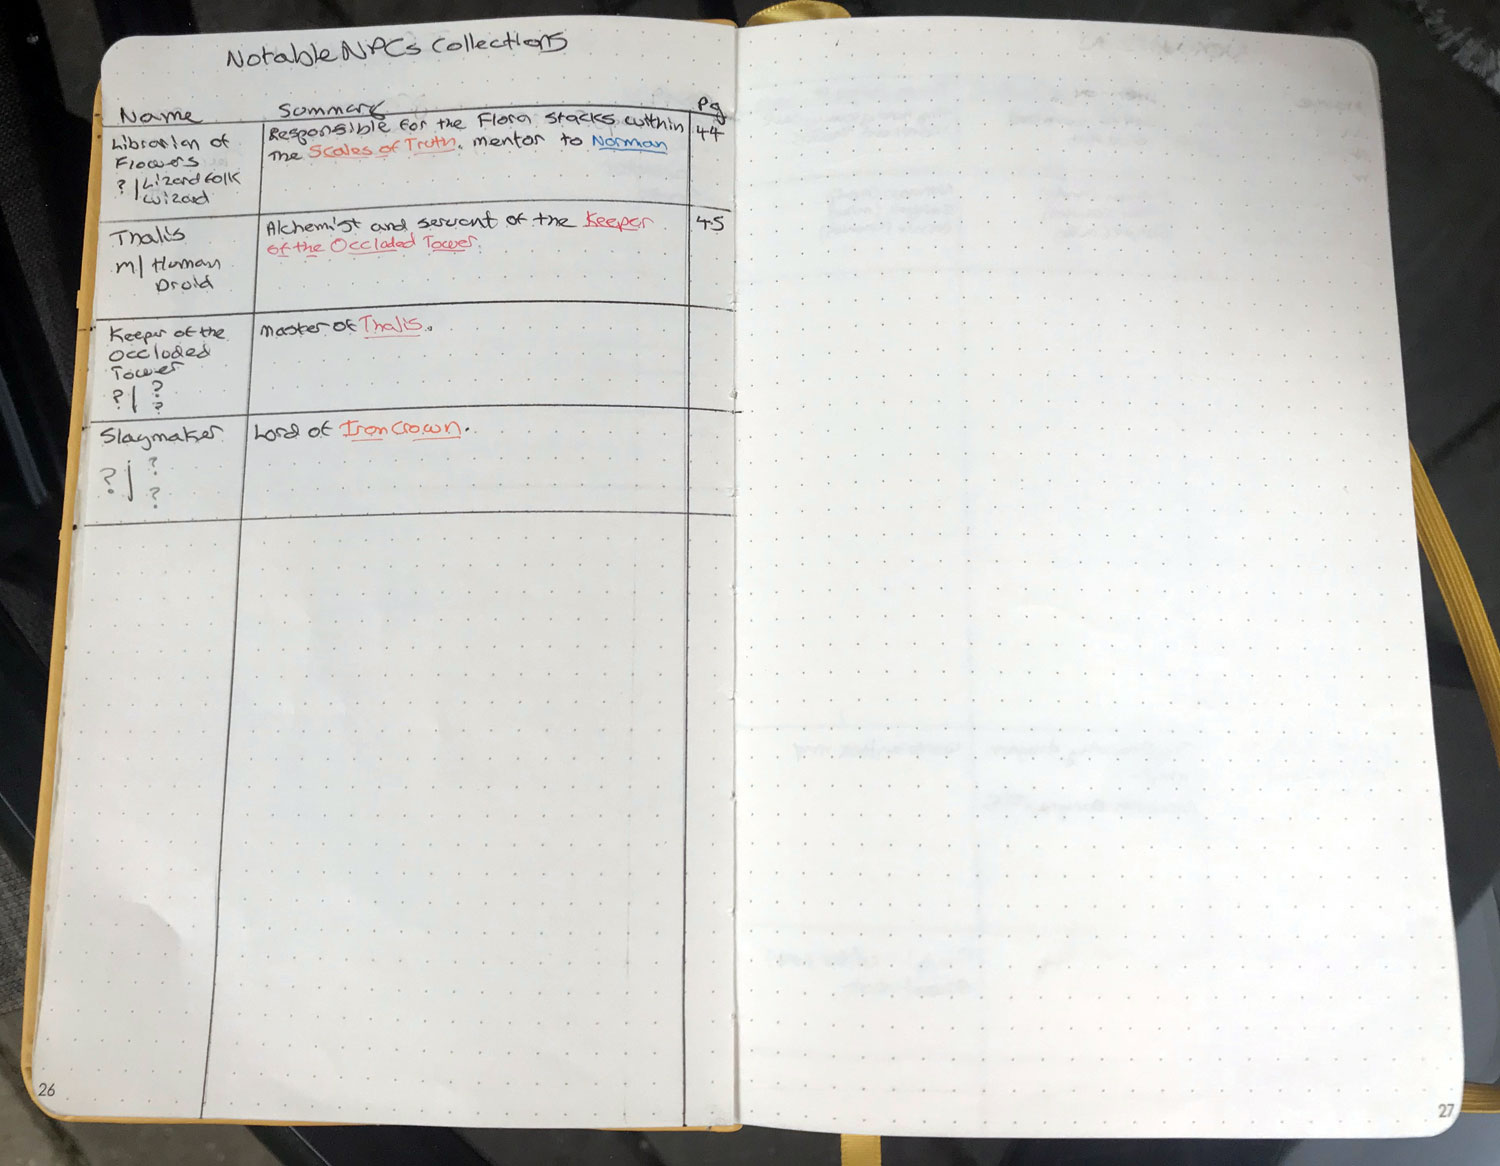 Notable NPCs Collections
Name Summary Pg
Librarian of
Flowers
? | Lizardfolk
Wizard
Responsible for the Flora Stacks within
the Scales of Truth. mentor to Norman
44
Thalis
m | Human
Druid
Alchemist and servant of the Keeper
of the Occluded Tower.
45
Keeper of the
Occluded
Tower
? | ?
?
Master of Thalis.
Slaymaker
? | ?
?
Lord of Iron Crown.
26
27